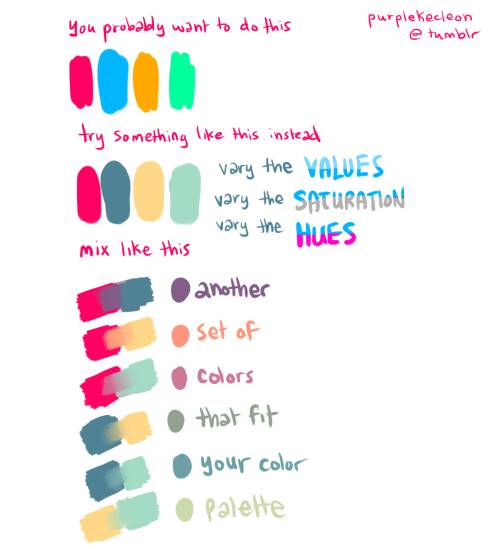 You probably want to do this
purplekecleon
@ tumblr
try something like this instead
vary the VALUES
vary the SATURATION
vary the HUES
mix like this
another
set of
colors
that fit
your color
palette